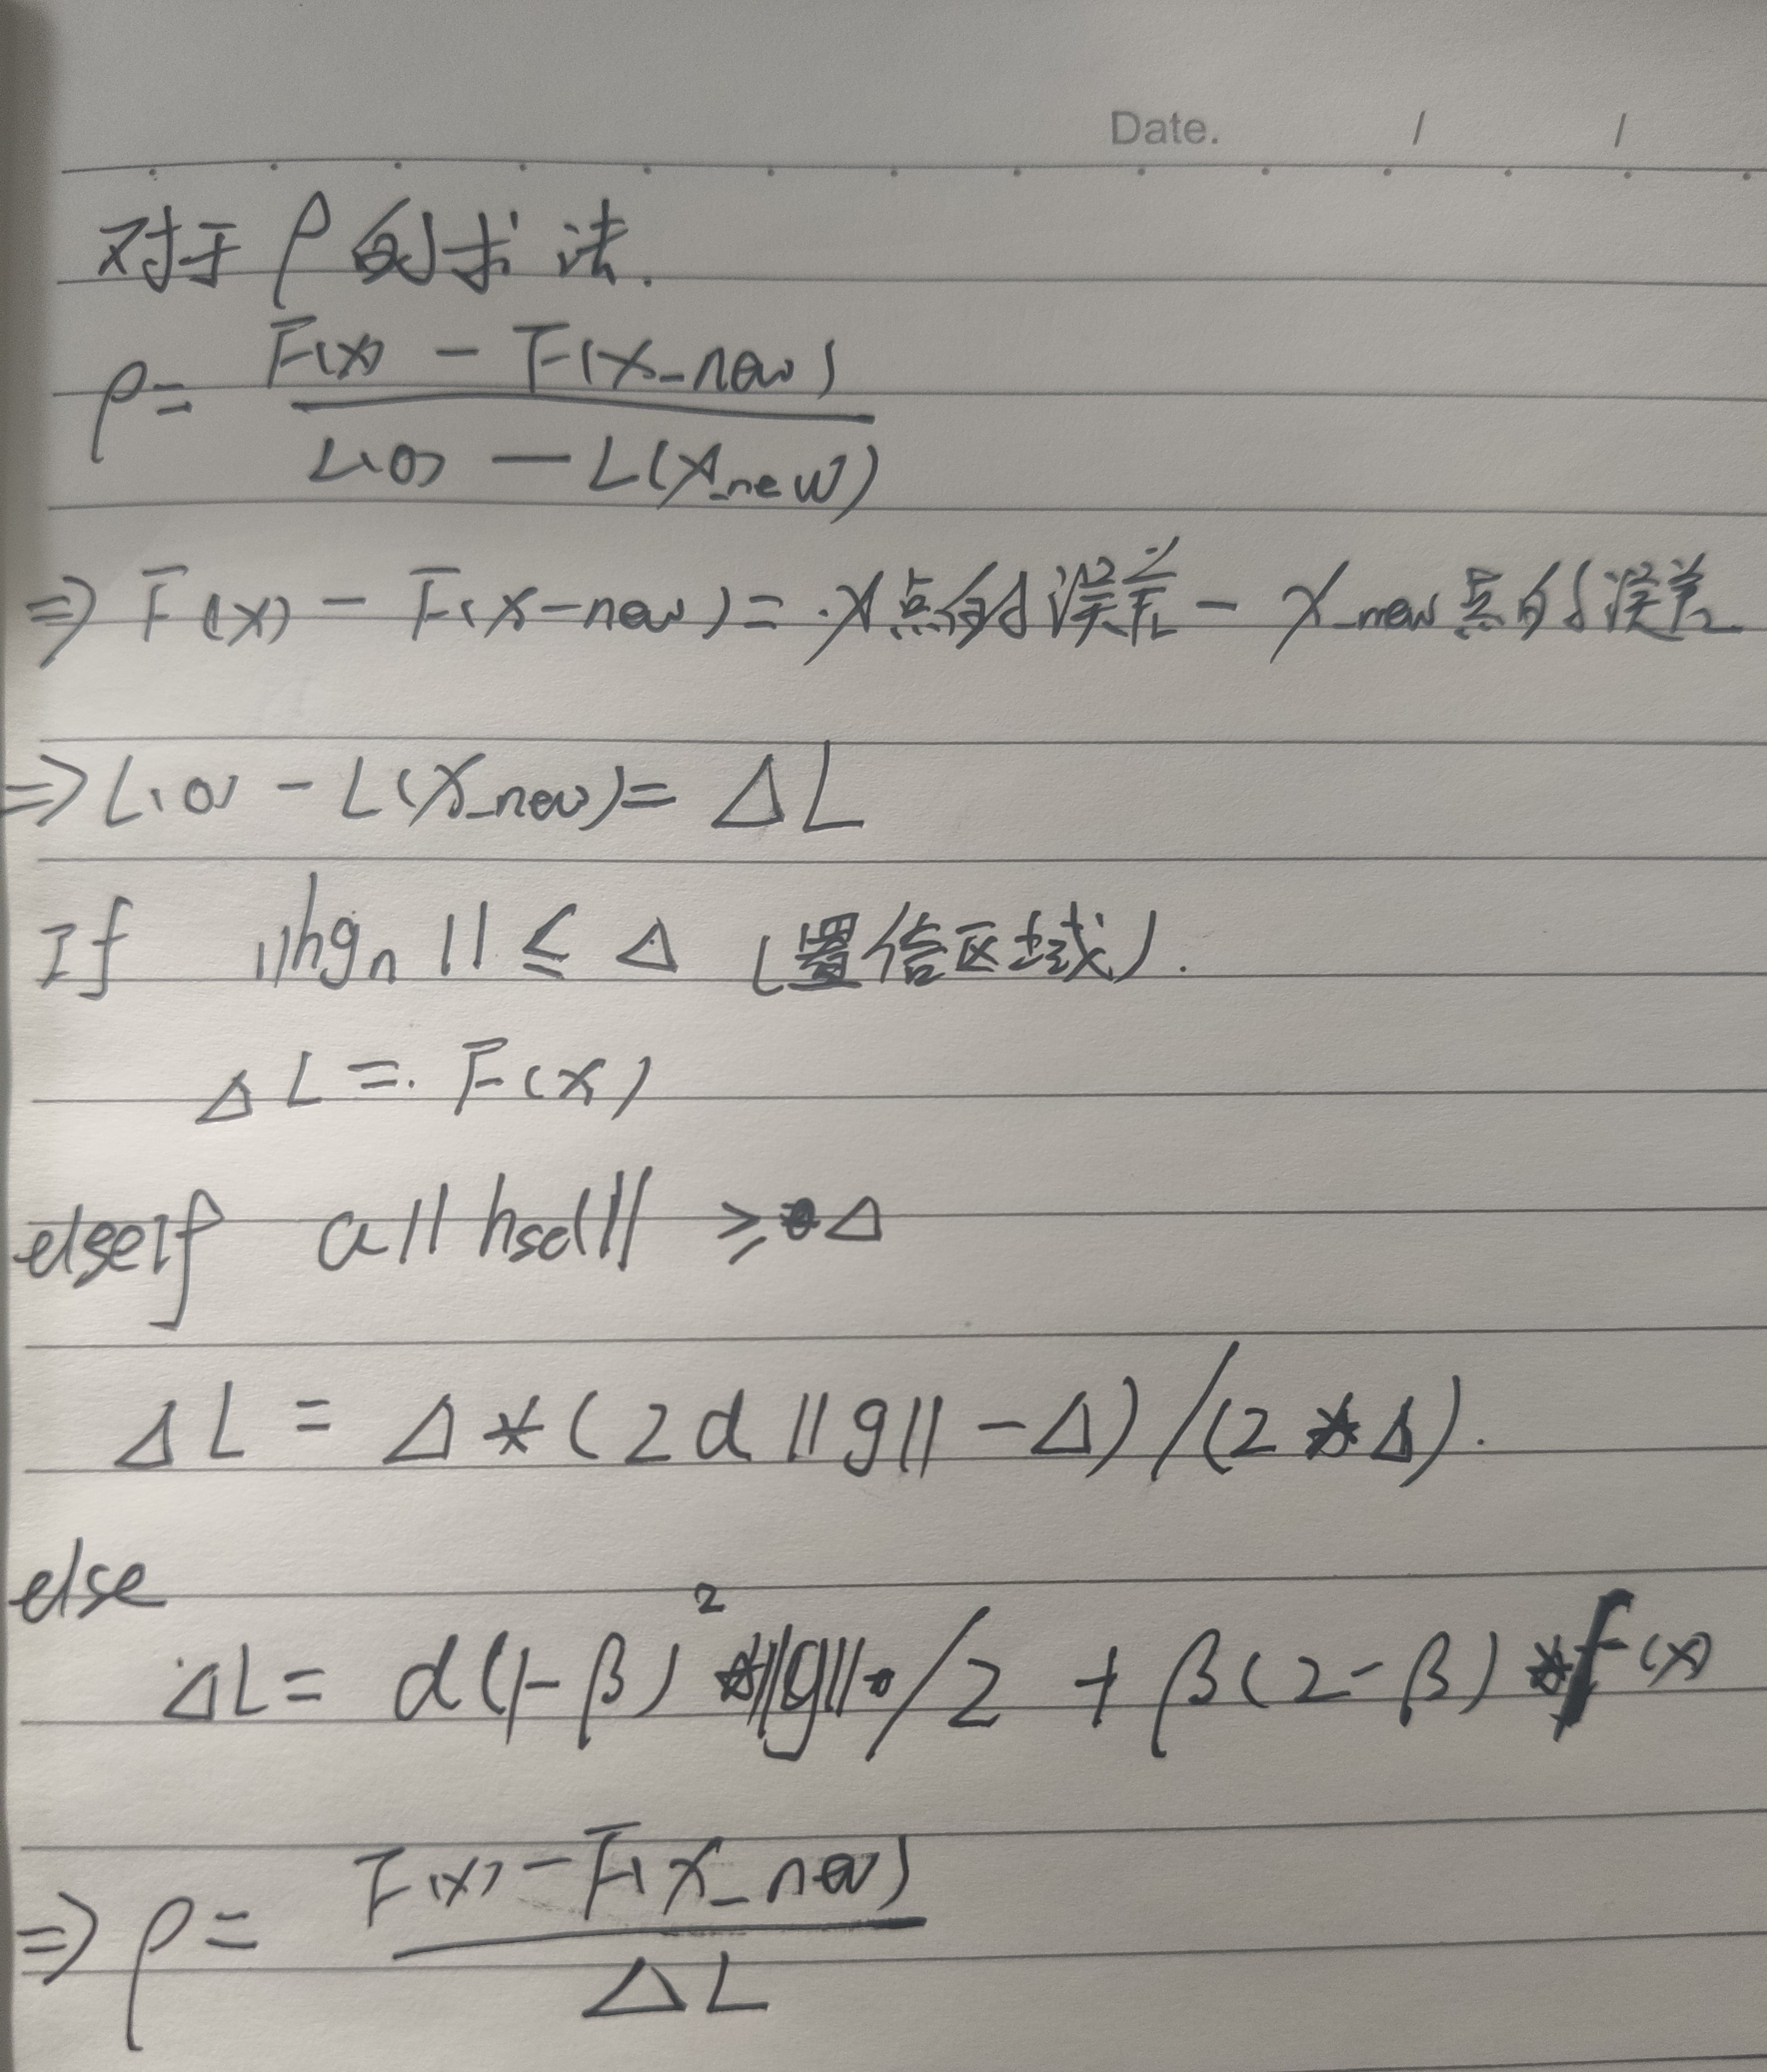 Date. / /
对于ρ的求法.
ρ= F(x) - F(x_new)
L(0) - L(x_new)
⇒ F(x) - F(x-new) = x点的误差 - x_new点的误差
⇒ L(0) - L(x_new) = ΔL
If ||hgn|| ≤ Δ (置信区域).
ΔL = F(x)
elseif α||hsd|| ≥ Δ
ΔL = Δ*(2α||g|| - Δ)/(2*Δ).
else
ΔL = α(1-β)²*||g||/2 + β(2-β)*f(x)
⇒ ρ= F(x) - F(x_new)
ΔL